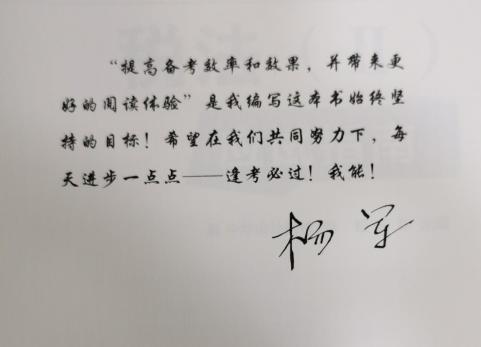 “提高备考效率和效果，并带来更
好的阅读体验”是我编写这本书始终坚
持的目标！希望在我们共同努力下，每
天进步一点点——逢考必过！我能！
杨军